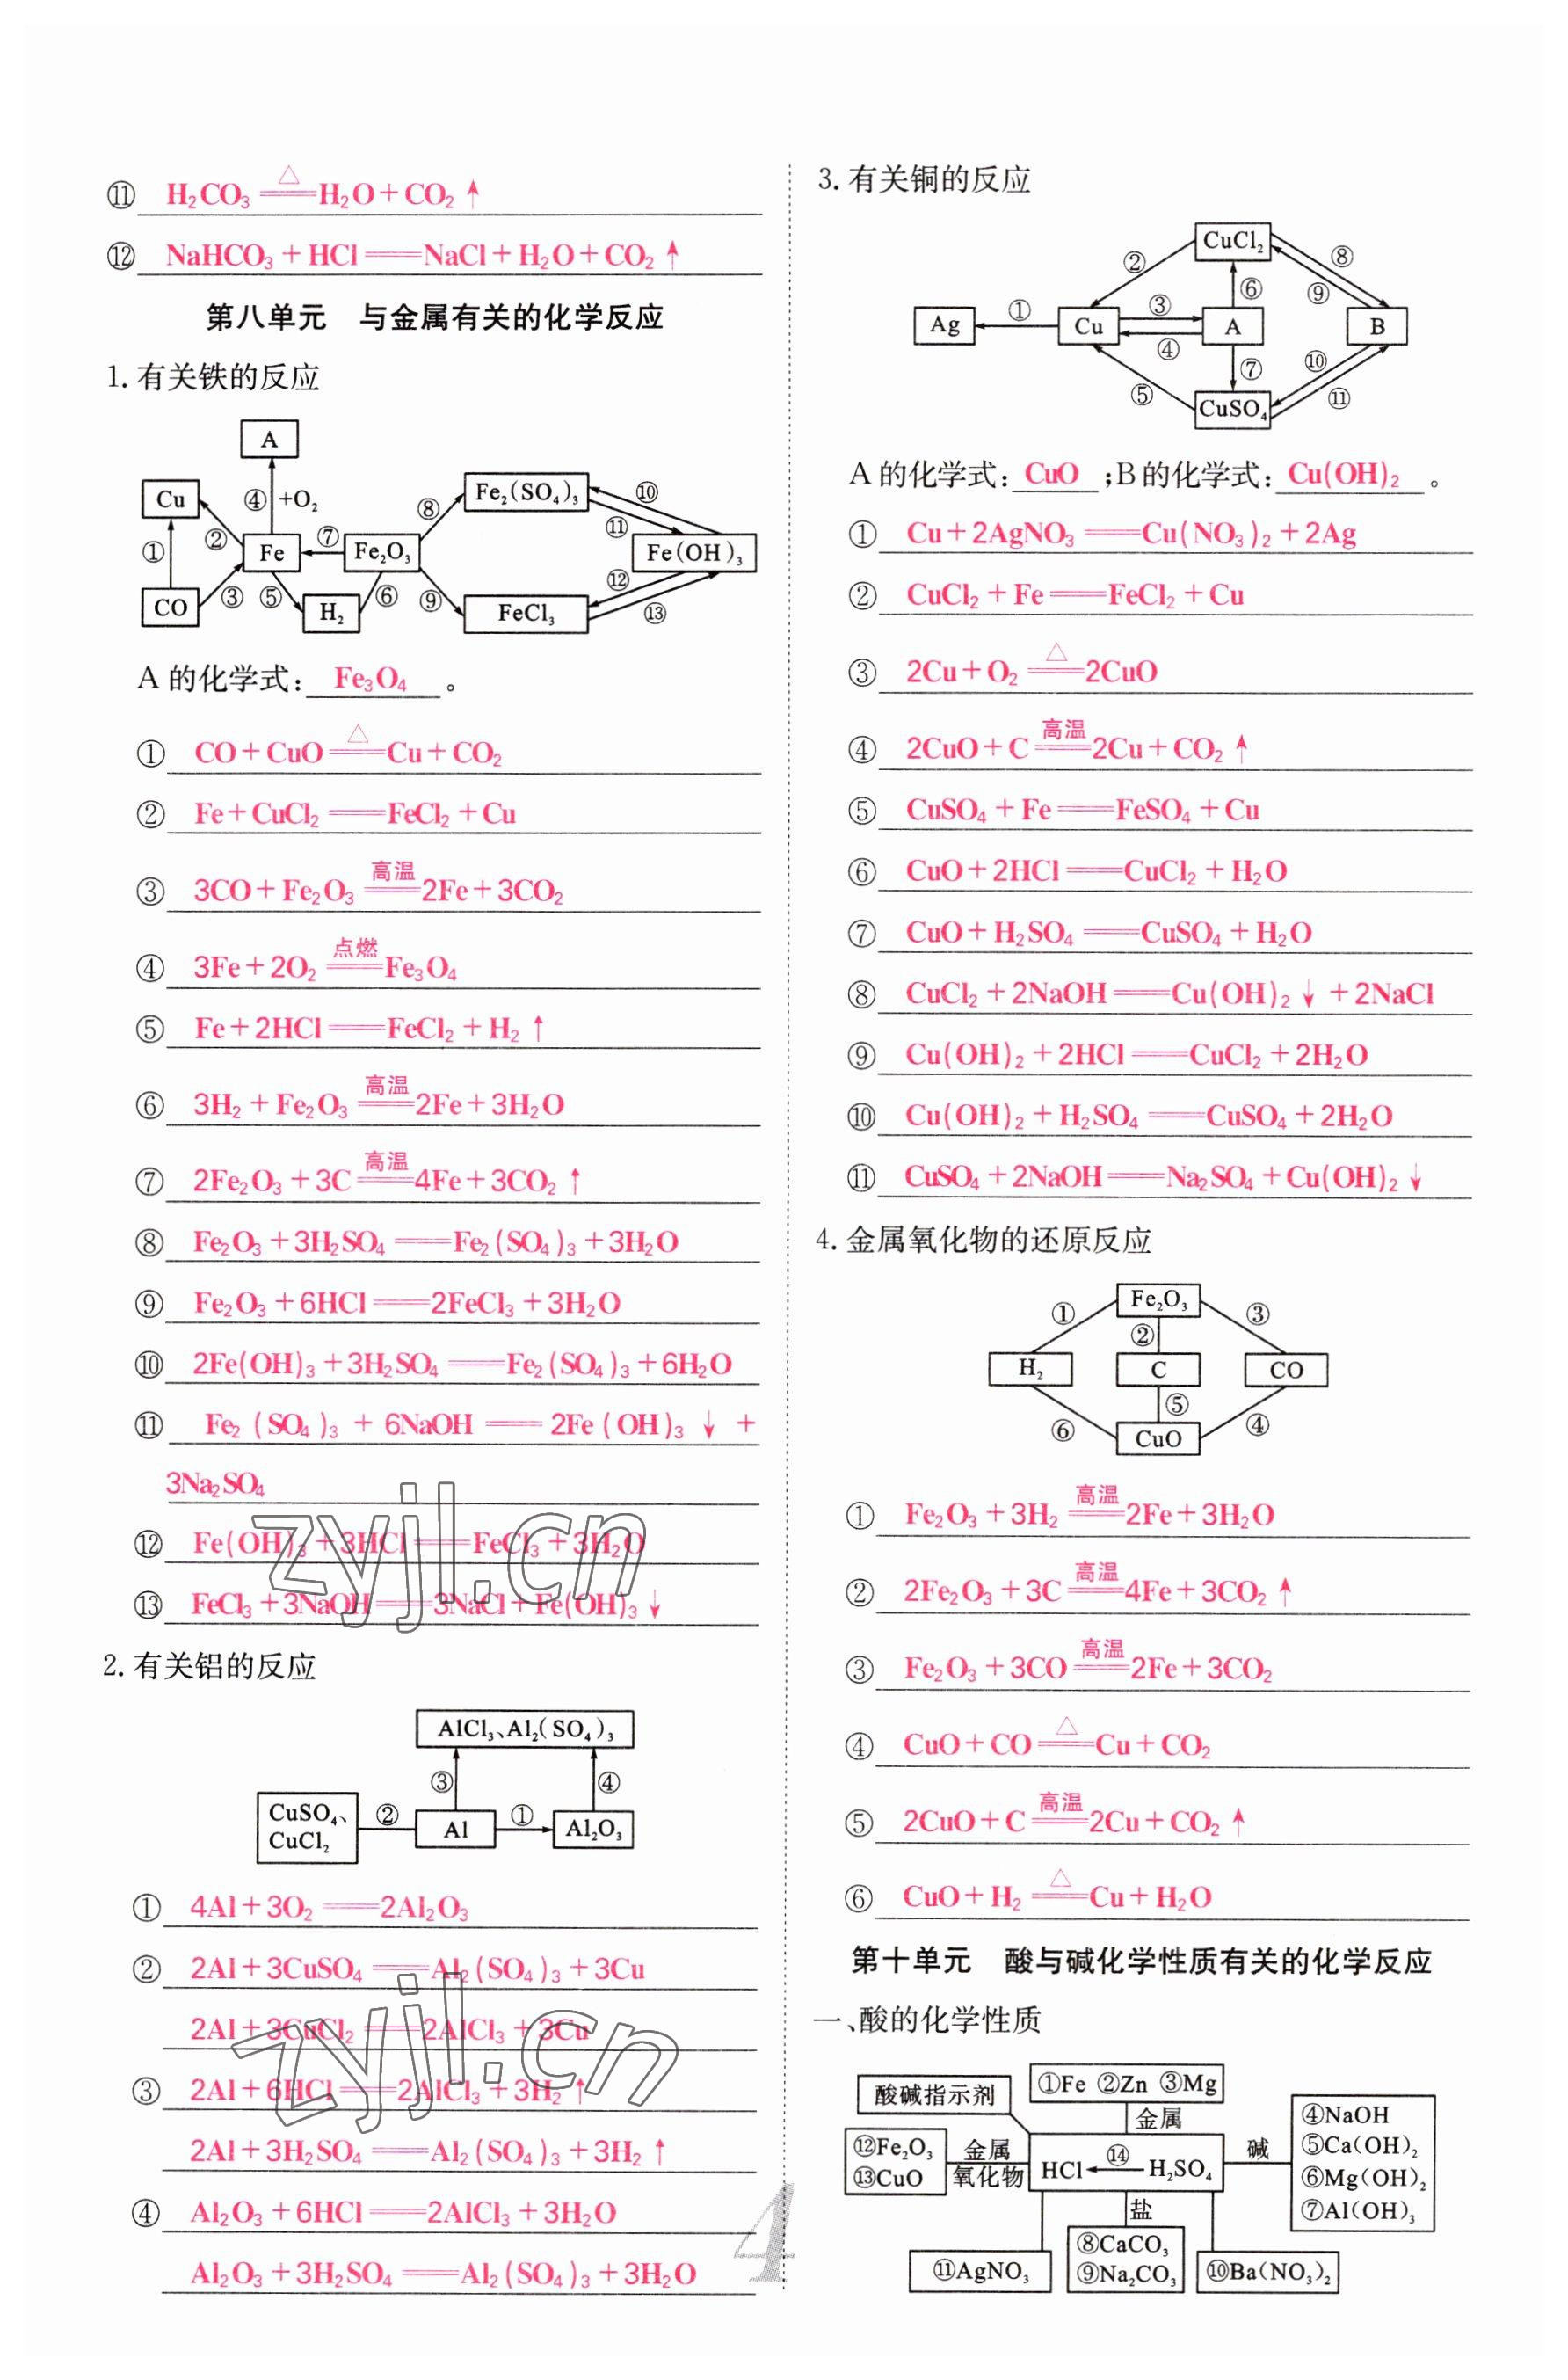 ⑪ H₂CO₃ ══△══ H₂O+CO₂↑
⑫ NaHCO₃+HCl══NaCl+H₂O+CO₂↑
第八单元 与金属有关的化学反应
1. 有关铁的反应
A
Cu ④ +O₂ Fe₂(SO₄)₃ ⑩
⑧ ⑪
① ② Fe ⑦ Fe₂O₃ Fe(OH)₃
⑫
CO ③ ⑤ H₂ ⑥ ⑨ FeCl₃ ⑬
A 的化学式: Fe₃O₄ 。
① CO+CuO ══△══ Cu+CO₂
② Fe+CuCl₂══FeCl₂+Cu
③ 3CO+Fe₂O₃ ══高温══ 2Fe+3CO₂
④ 3Fe+2O₂ ══点燃══ Fe₃O₄
⑤ Fe+2HCl══FeCl₂+H₂↑
⑥ 3H₂+Fe₂O₃ ══高温══ 2Fe+3H₂O
⑦ 2Fe₂O₃+3C ══高温══ 4Fe+3CO₂↑
⑧ Fe₂O₃+3H₂SO₄══Fe₂(SO₄)₃+3H₂O
⑨ Fe₂O₃+6HCl══2FeCl₃+3H₂O
⑩ 2Fe(OH)₃+3H₂SO₄══Fe₂(SO₄)₃+6H₂O
⑪ Fe₂(SO₄)₃+6NaOH══2Fe(OH)₃↓+
3Na₂SO₄
⑫ Fe(OH)₃+3HCl══FeCl₃+3H₂O
⑬ FeCl₃+3NaOH══3NaCl+Fe(OH)₃↓
zyjl.cn
2. 有关铝的反应
AlCl₃、Al₂(SO₄)₃
③ ④
CuSO₄、
CuCl₂ ② Al ① Al₂O₃
① 4Al+3O₂══2Al₂O₃
② 2Al+3CuSO₄══Al₂(SO₄)₃+3Cu
2Al+3CuCl₂══2AlCl₃+3Cu
③ 2Al+6HCl══2AlCl₃+3H₂↑
2Al+3H₂SO₄══Al₂(SO₄)₃+3H₂↑
zyjl.cn
④ Al₂O₃+6HCl══2AlCl₃+3H₂O
Al₂O₃+3H₂SO₄══Al₂(SO₄)₃+3H₂O
3. 有关铜的反应
CuCl₂
② ⑥ ⑧ ⑨
Ag ① Cu ③ ④ A B
⑤ ⑦ ⑩ ⑪
CuSO₄
A 的化学式: CuO ;B的化学式: Cu(OH)₂ 。
① Cu+2AgNO₃══Cu(NO₃)₂+2Ag
② CuCl₂+Fe══FeCl₂+Cu
③ 2Cu+O₂ ══△══ 2CuO
④ 2CuO+C ══高温══ 2Cu+CO₂↑
⑤ CuSO₄+Fe══FeSO₄+Cu
⑥ CuO+2HCl══CuCl₂+H₂O
⑦ CuO+H₂SO₄══CuSO₄+H₂O
⑧ CuCl₂+2NaOH══Cu(OH)₂↓+2NaCl
⑨ Cu(OH)₂+2HCl══CuCl₂+2H₂O
⑩ Cu(OH)₂+H₂SO₄══CuSO₄+2H₂O
⑪ CuSO₄+2NaOH══Na₂SO₄+Cu(OH)₂↓
4. 金属氧化物的还原反应
① Fe₂O₃ ③
②
H₂ C CO
⑤
⑥ CuO ④
① Fe₂O₃+3H₂ ══高温══ 2Fe+3H₂O
② 2Fe₂O₃+3C ══高温══ 4Fe+3CO₂↑
③ Fe₂O₃+3CO ══高温══ 2Fe+3CO₂
④ CuO+CO ══△══ Cu+CO₂
⑤ 2CuO+C ══高温══ 2Cu+CO₂↑
⑥ CuO+H₂ ══△══ Cu+H₂O
第十单元 酸与碱化学性质有关的化学反应
一、酸的化学性质
酸碱指示剂 ①Fe ②Zn ③Mg
金属 ④NaOH
⑫Fe₂O₃ 金属 ⑭ 碱 ⑤Ca(OH)₂
⑬CuO 氧化物 HCl H₂SO₄ ⑥Mg(OH)₂
盐 ⑦Al(OH)₃
⑧CaCO₃
⑪AgNO₃ ⑨Na₂CO₃ ⑩Ba(NO₃)₂
4